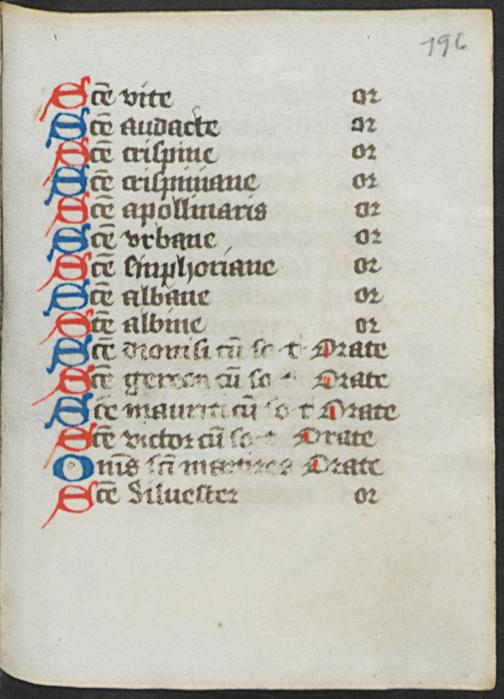 196
Sce vite or
Sce audacte or
Sce crispine or
Sce crispiniane or
Sce apollinaris or
Sce vrbane or
Sce simphoriane or
Sce albane or
Sce albine or
Sce dionisi cū so t Orate
Sce gereon cū so t Orate
Sce mauriti cū so t Orate
Sce victor cū so t Orate
Om̄s sc̄i martires Orate
Sce Siluester or